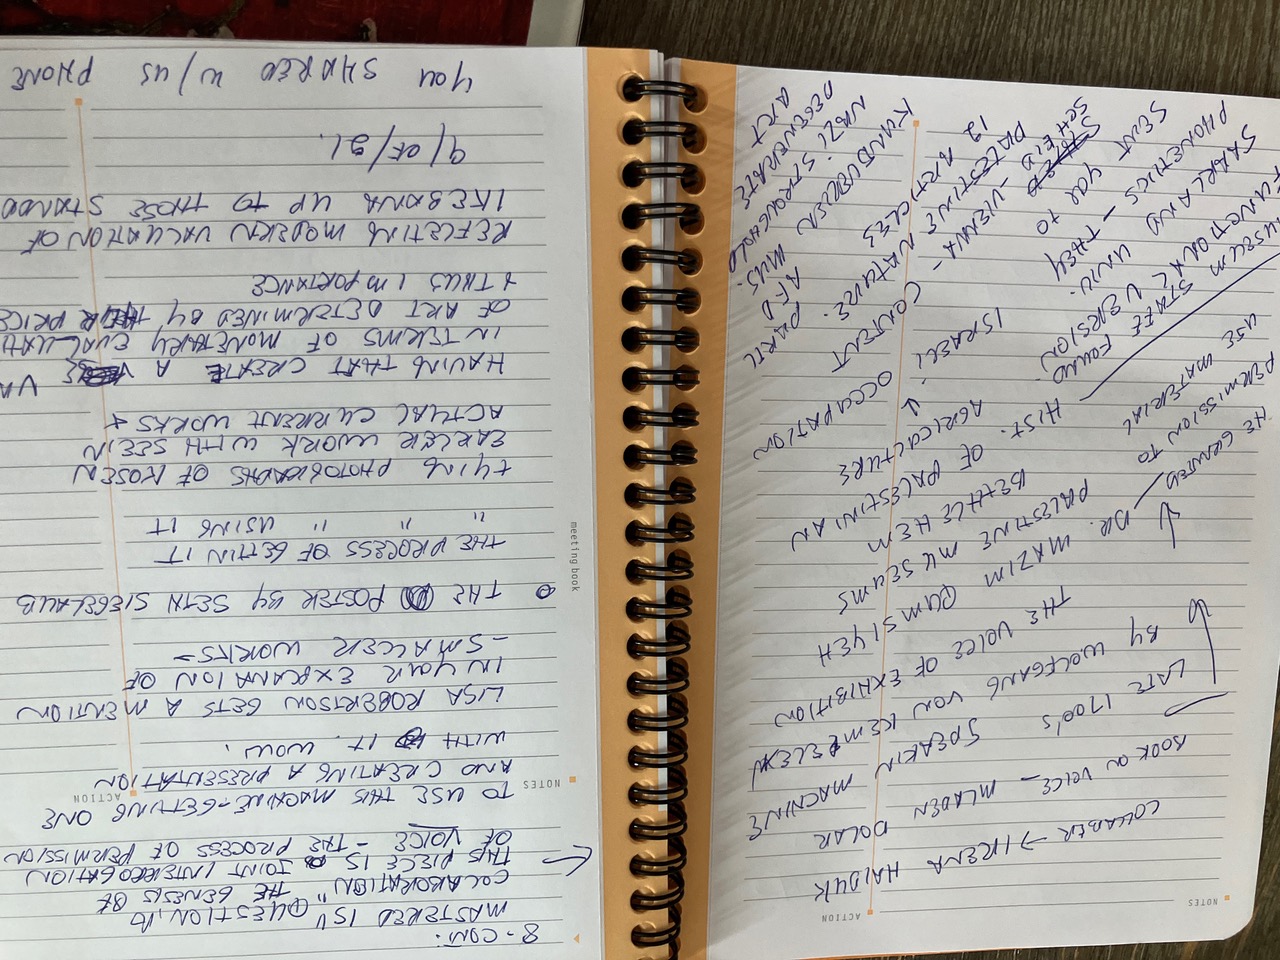 NOTES
ACTION
COLLABER → IRENA HAIDUK
BOOK ON VOICE – MLADEN DOLAR
LATE 1700'S SPEAKIN MACHINE
BY WOLFGANG VON KEMPELEN
THE VOICE OF EXHIBITION
DR. MAZIM QUMSIYEH
PALESTINE MUSEUMS
BETHLEHEM
HIST. OF PALESTINIAN
AGRICULTURE
HE GRANTED
PERMISSION TO
USE MATERIAL
MUSEUM STAFF FOUND
FUNCTIONAL VERSION
SAARLAND UNIV.
PHONETICS – THEY
SENT YOU TO
SCHELD – VIENNA –
ISRAELI
OCCUPATION
PALESTINE NATURE.
CONTENT
12 ART(ICLES
KUNDVERSEN MUS.
AFD PARIL
NAZI STRONGHOLD
DEGENERATE
ART
8-CON:
MASTERED IS "QUESTION, NO
COLABORATION" THE GENESIS OF
THIS PIECE IS JOINT INTERROGATION
OF VOICE – THE PROCESS OF PERMISSION
TO USE THIS MACHINE – GETTING ONE
AND CREATING A PRESENTATION
WITH IT. WOW.
NOTES
ACTION
LISA ROBERTSON GETS A MENTION
IN YOUR EXPLANATION OF
– SMALLER WORKS –
THE POSTER BY SETH SIEGELAUB
THE PROCESS OF GETTIN IT
" " " USING IT
meeting book
TYING PHOTOGRAPHS OF ROSEN
EARLER WORK WITH SEEIN
ACTUAL CURRENT WORKS +
HAVING THAT CREATE A VA
IN TERMS OF MONETARY EVALUATI
OF ART DETERMINED BY THEIR PRICE
+ THUS IMPORTANCE
REFLECTING MODERN VALUATION OF
IKEBANA UP TO THOSE STANDA
9/OF/21.
YOU SHARED W/US PHONE